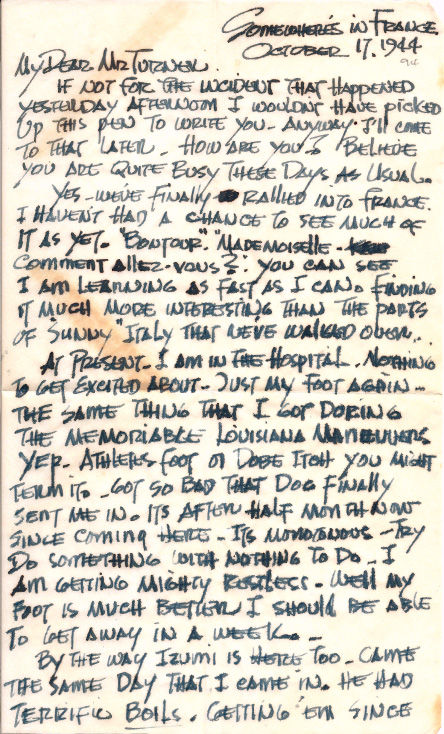 Somewhere's in France.
October 17, 1944
My Dear Mr Turner,
If not for the incident that happened
yesterday afternoon I wouldn't have picked
up this pen to write you - Anyway I'll come
to that later - How are you? I believe
you are quite busy these days as usual.
Yes - we've finally rallied into France.
I haven't had a chance to see much of
it as yet. "Bonjour." "Mademoiselle -
comment allez-vous?" You can see
I am learning as fast as I can. Finding
it much more interesting than the parts
of "Sunny" Italy that we've walked over.
At present - I am in the Hospital. Nothing
to get excited about - Just my foot again -
the same thing that I got doring
the memoriable Louisiana Maneuvers
Yep - Athletes foot or Dobe Itch you might
term it. Got so bad that Doc finally
sent me in. It's after half month now
since coming here - It's monotonous - Try
do something with nothing to do - I
am getting mighty restless. Well my
foot is much better I should be able
to get away in a week. -
By the way Izumi is here too - came
the same day that I came in. He had
terrific boils. Getting 'em since